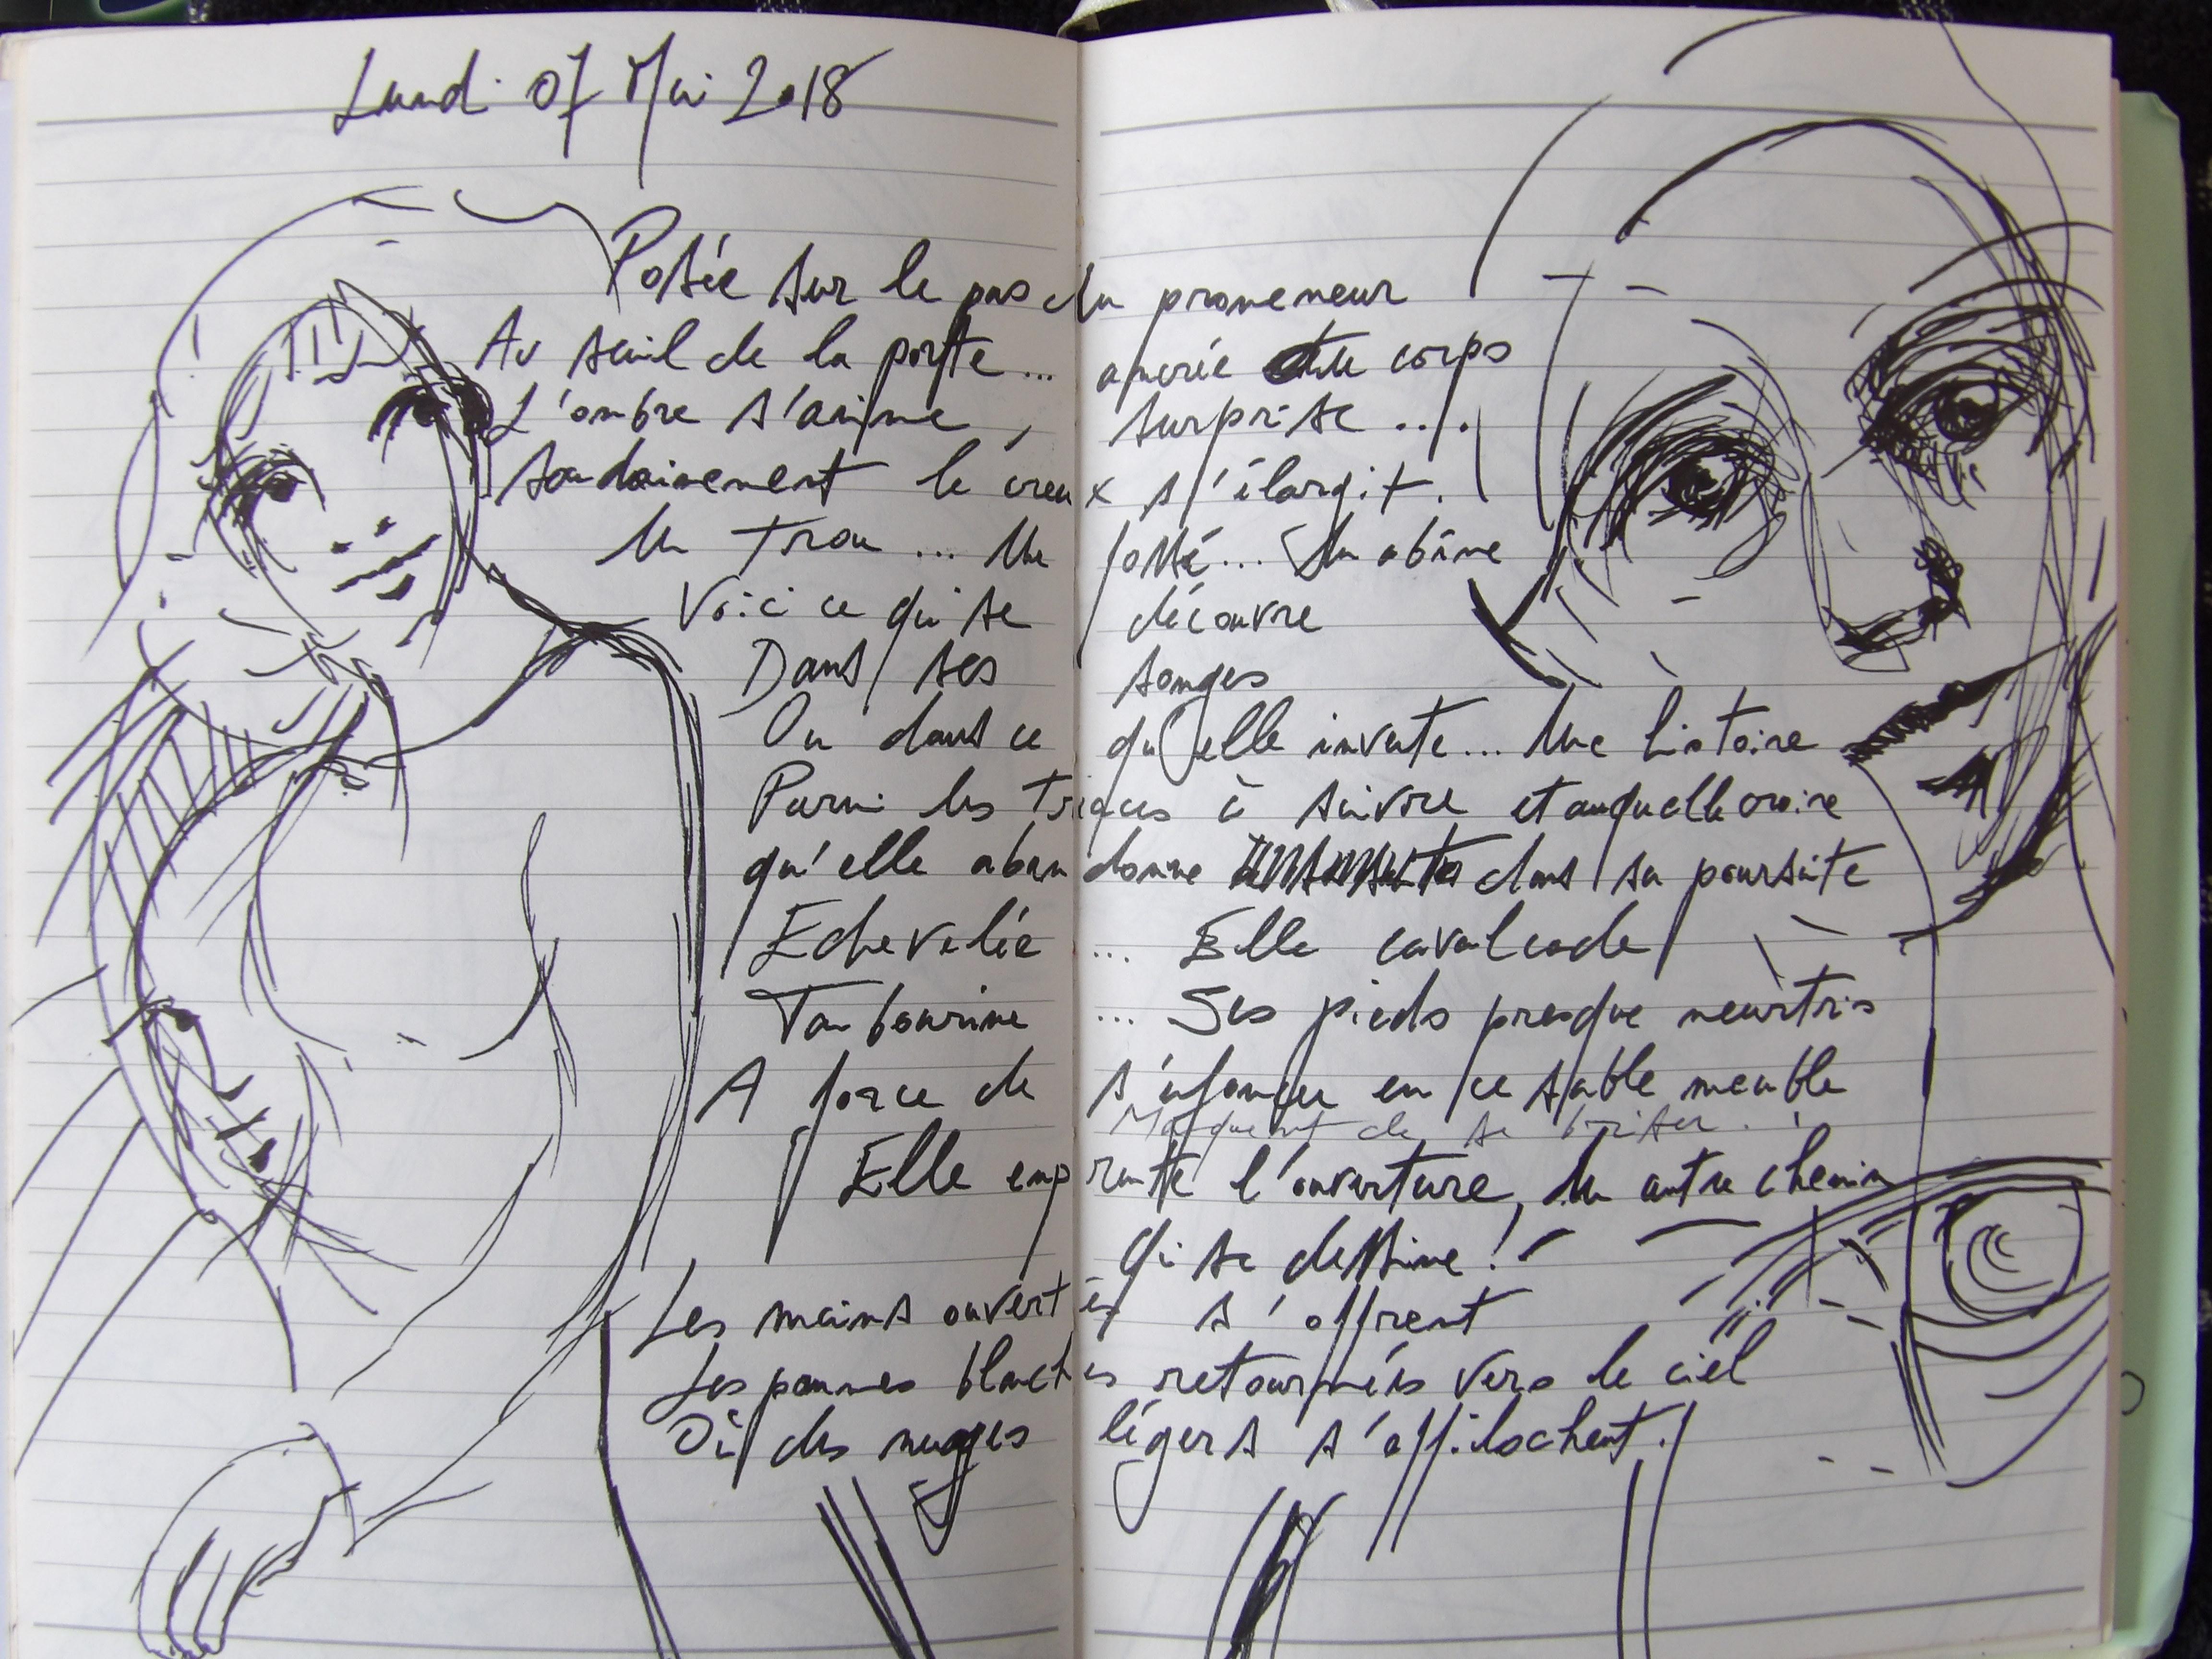 Lundi 07 Mai 2018
Posée sur le pas du promeneur
Au seuil de la porte... corps
L'ombre s'anime, surprise....
soudainement le creux s'élargit.
Un trou... Une fossé... Un abîme
Voici ce qui se découvre
Dans ses songes
Ou dans ce qu'elle invente... Une histoire
Parmi les traces à suivre et auquelle croire
qu'elle abandonne dans sa poursuite
Echevelée... Elle cavalcade
Tambourine... Ses pieds presque meurtris
A force de s'enfoncer en ce sable meuble
Manquent de se briser..
Elle emprunte l'ouverture, Un autre chemin
qui se dessine!
Les mains ouvertes s'offrent
Les paumes blanches retournées vers le ciel
Où des nuages légers s'effilochent.